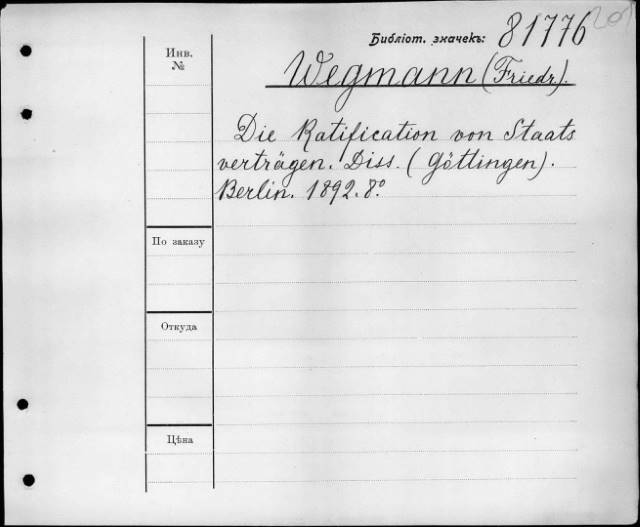 Библіот. значекъ: 81776
Инв.
№
Wegmann (Friedr).
Die Ratification von Staats
verträgen. Diss. (Göttingen).
Berlin. 1892. 8.º
По заказу
Откуда
Цѣна